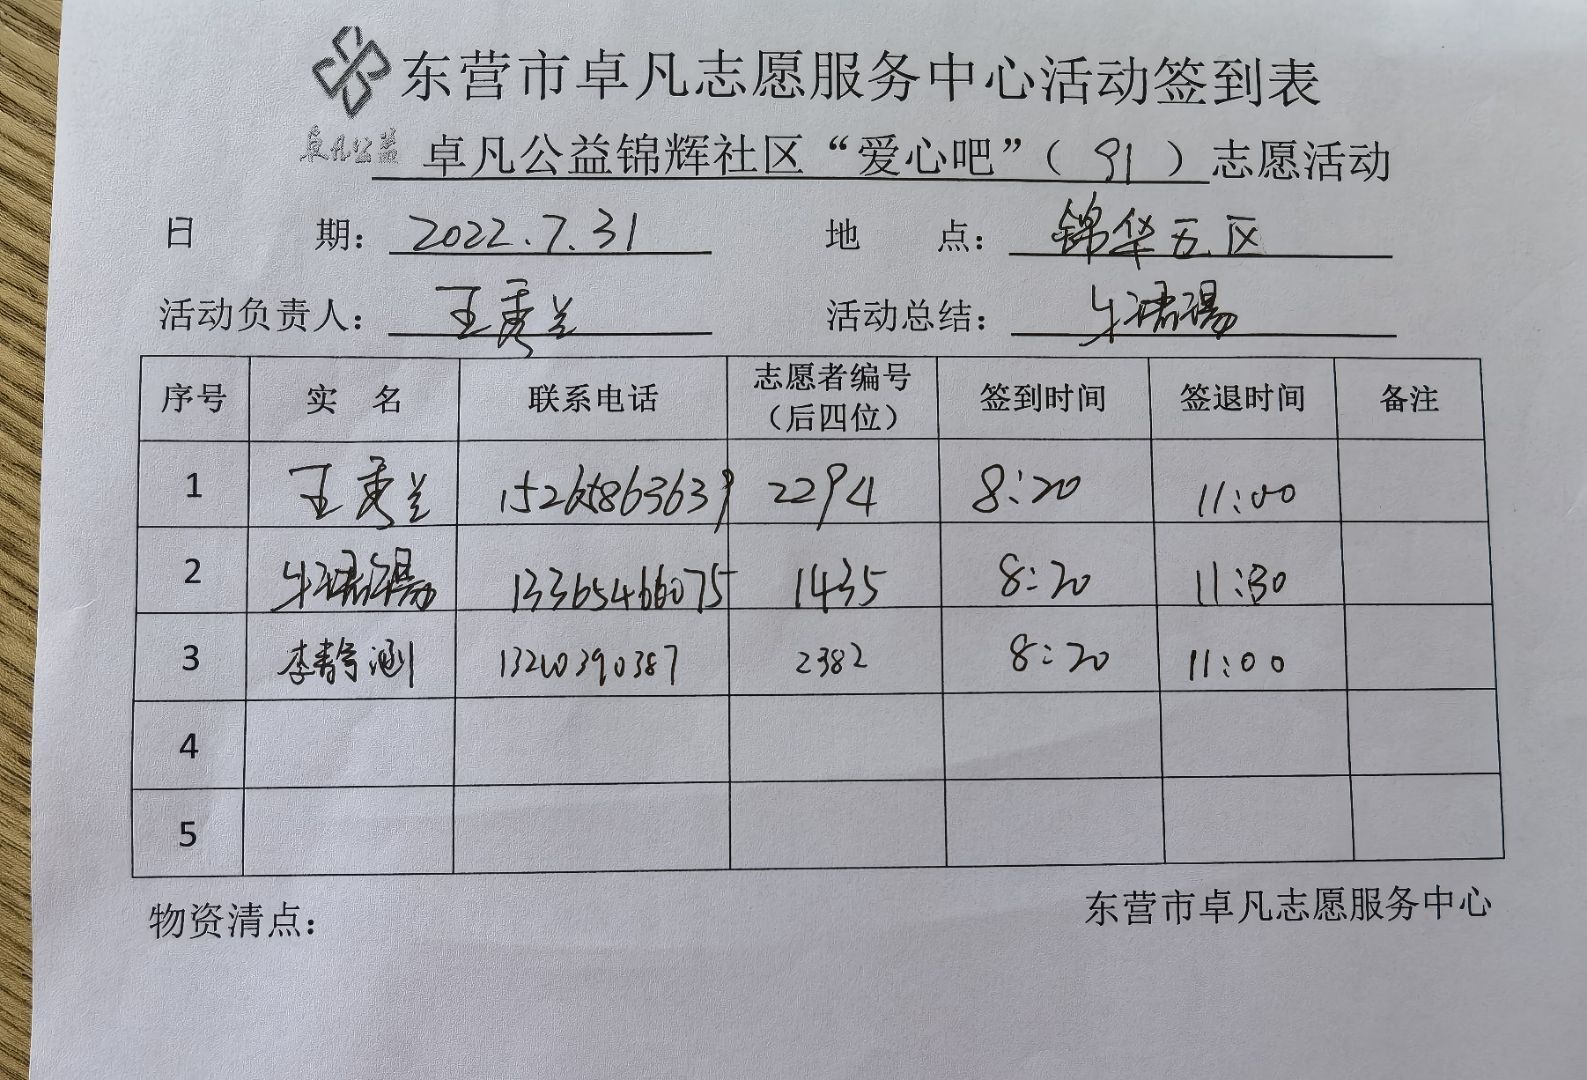 东营市卓凡志愿服务中心活动签到表
卓凡公益 卓凡公益锦辉社区“爱心吧”（ 91 ）志愿活动
日 期： 2022.7.31 地 点： 锦华五区
活动负责人： 王秀兰 活动总结： 牛
序号 实 名 联系电话 志愿者编号（后四位） 签到时间 签退时间 备注
1 王秀兰 15265863639 2294 8:20 11:00
2 牛 13365466075 1435 8:20 11:30
3 李静涵 13210390387 2382 8:20 11:00
4
5
物资清点： 东营市卓凡志愿服务中心